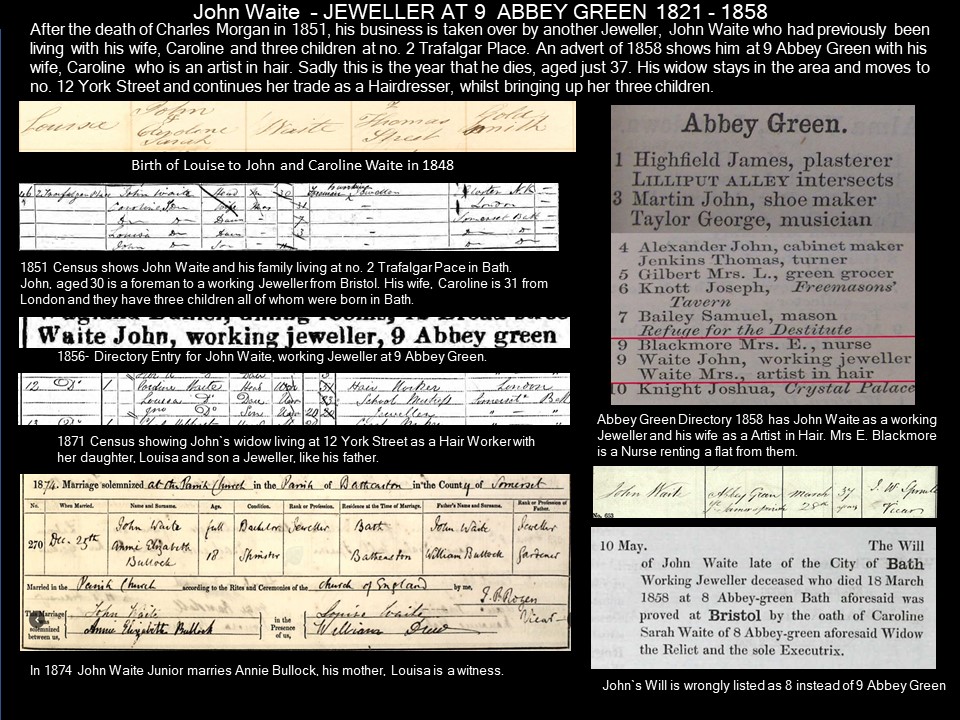 John Waite – JEWELLER AT 9 ABBEY GREEN 1821 - 1858
After the death of Charles Morgan in 1851, his business is taken over by another Jeweller, John Waite who had previously been
living with his wife, Caroline and three children at no. 2 Trafalgar Place. An advert of 1858 shows him at 9 Abbey Green with his
wife, Caroline who is an artist in hair. Sadly this is the year that he dies, aged just 37. His widow stays in the area and moves to
no. 12 York Street and continues her trade as a Hairdresser, whilst bringing up her three children.
Louisa John Waite Thomas Gold
Sarah Street Smith
Birth of Louise to John and Caroline Waite in 1848
John Waite Head
London
Somerset Bath
Louisa Do Daur
John Do Son
1851 Census shows John Waite and his family living at no. 2 Trafalgar Pace in Bath.
John, aged 30 is a foreman to a working Jeweller from Bristol. His wife, Caroline is 31 from
London and they have three children all of whom were born in Bath.
Waite John, working jeweller, 9 Abbey green
1856- Directory Entry for John Waite, working Jeweller at 9 Abbey Green.
12 Do 1 Caroline Waite Head Hair Worker London
Louisa Do Daur School Somerset Bath
Do Son Jeweller
1871 Census showing John`s widow living at 12 York Street as a Hair Worker with
her daughter, Louisa and son a Jeweller, like his father.
1874. Marriage solemnized at the Parish Church in the Parish of Batheaston in the County of Somerset
No. When Married. Name and Surname. Age. Condition. Rank or Profession. Residence at the Time of Marriage. Father's Name and Surname. Rank or Profession of Father.
270 Dec. 25th John Waite full Bachelor Jeweller Bath John Waite Jeweller
Annie Elizabeth Bullock 18 Spinster Batheaston William Bullock Gardener
Married in the Parish Church according to the Rites and Ceremonies of the Church of England by me,
T. P. Rogers Vicar
This Marriage was solemnized between us, John Waite in the Presence of us, Louisa Waite
Annie Elizabeth Bullock William Drew
In 1874 John Waite Junior marries Annie Bullock, his mother, Louisa is a witness.
Abbey Green.
1 Highfield James, plasterer
LILLIPUT ALLEY intersects
3 Martin John, shoe maker
Taylor George, musician
4 Alexander John, cabinet maker
Jenkins Thomas, turner
5 Gilbert Mrs. L., green grocer
6 Knott Joseph, Freemasons'
Tavern
7 Bailey Samuel, mason
Refuge for the Destitute
9 Blackmore Mrs. E., nurse
9 Waite John, working jeweller
Waite Mrs., artist in hair
10 Knight Joshua, Crystal Palace
Abbey Green Directory 1858 has John Waite as a working
Jeweller and his wife as a Artist in Hair. Mrs E. Blackmore
is a Nurse renting a flat from them.
John Waite Abbey Green March 37
28th years Vicar
No. 653
10 May. The Will
of John Waite late of the City of Bath
Working Jeweller deceased who died 18 March
1858 at 8 Abbey-green Bath aforesaid was
proved at Bristol by the oath of Caroline
Sarah Waite of 8 Abbey-green aforesaid Widow
the Relict and the sole Executrix.
John`s Will is wrongly listed as 8 instead of 9 Abbey Green